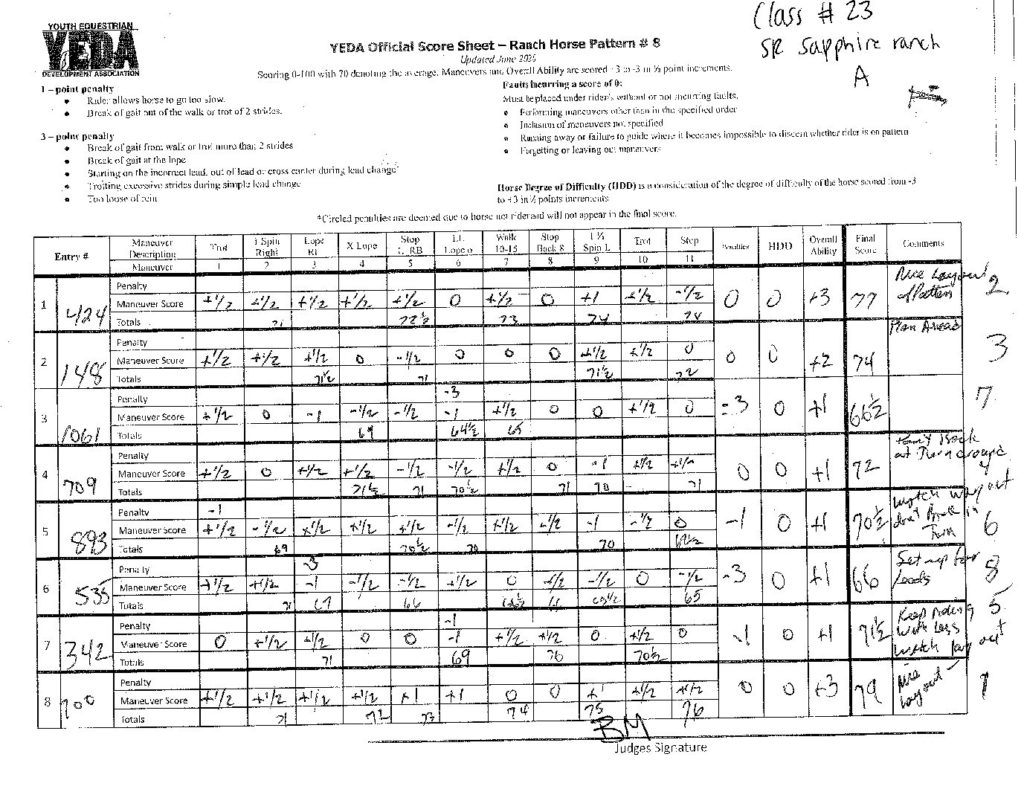 YOUTH EQUESTRIAN
YEDA
DEVELOPMENT ASSOCIATION
Class # 23
SR Sapphire ranch
A
YEDA Official Score Sheet – Ranch Horse Pattern # 8
Scoring 0-100 with 70 denoting the average. Maneuvers and Overall Ability are scored +3 to -3 in ½ point increments.
1 – point penalty
Rider allows horse to go too slow.
Break of gait out of the walk or trot of 2 strides.
3 – point penalty
Break of gait from walk or trot more than 2 strides
Break of gait at the lope
Starting on the incorrect lead, out of lead or cross canter during lead change
Trotting excessive strides during simple lead change
Too loose of rein
Faults incurring a score of 0:
Must be placed under riders without or not incurring faults.
Performing maneuvers other than in the specified order
Inclusion of maneuvers not specified
Running away or failure to guide where it becomes impossible to discern whether rider is on pattern
Forgetting or leaving out maneuvers
Horse Degree of Difficulty (HDD) is a consideration of the degree of difficulty of the horse scored from -3
to +3 in ½ points increments
*Circled penalties are deemed due to horse not rider and will not appear in the final score.
Entry # Maneuver Description Trot 1 Spin Right Lope RL X Lope Stop L RB LL Lope Walk 10-15 Stop Back 8 1 ½ Spin L Trot Stop Penalties HDD Overall Ability Final Score Comments
Maneuver 1 2 3 4 5 6 7 8 9 10 11
1 424
Penalty
Maneuver Score +1/2 +1/2 +1/2 +1/2 +1/2 0 +1/2 0 +1 +1/2 -1/2 0 0 +3 77 Nice Layout of Pattern 2
Totals 71 72½ 73 74 74
2 148
Penalty
Maneuver Score +1/2 +1/2 +1/2 0 -1/2 0 0 0 +1/2 +1/2 0 0 0 +2 74 Plan Ahead 3
Totals 71½ 71 71½ 72
3 1061
Penalty -3
Maneuver Score +1/2 0 -1 -1/2 -1/2 -1 +1/2 0 0 +1/2 0 -3 0 +1 66½ 7
Totals 69 64½ 65
4 709
Penalty
Maneuver Score +1/2 0 +1/2 +1/2 -1/2 -1/2 +1/2 0 -1 +1/2 +1/2 0 0 +1 72 at Turn around 4
Totals 71½ 71 70½ 71 70 71
5 893
Penalty -1
Maneuver Score +1/2 -1/2 +1/2 +1/2 +1/2 -1/2 +1/2 +1/2 -1 -1/2 0 -1 0 +1 70½ watch way out don't in Turn 6
Totals 69 70½ 70 70 69½
6 535
Penalty -3
Maneuver Score +1/2 +1/2 -1 -1/2 -1/2 +1/2 0 -1/2 -1/2 0 -1/2 -3 0 +1 66 Set up for Leads 8
Totals 71 67 66 65
7 342
Penalty -1
Maneuver Score 0 +1/2 +1/2 0 0 -1 +1/2 +1/2 0 +1/2 0 -1 0 +1 71½ Keep riding with Legs watch lay out 5
Totals 71 69 70 70½
8 700
Penalty
Maneuver Score +1/2 +1/2 +1/2 +1/2 +1 +1 0 0 +1 +1/2 +1/2 0 0 +3 79 Nice Layout 1
Totals 71 72 73 74 75 76
BM
Judges Signature